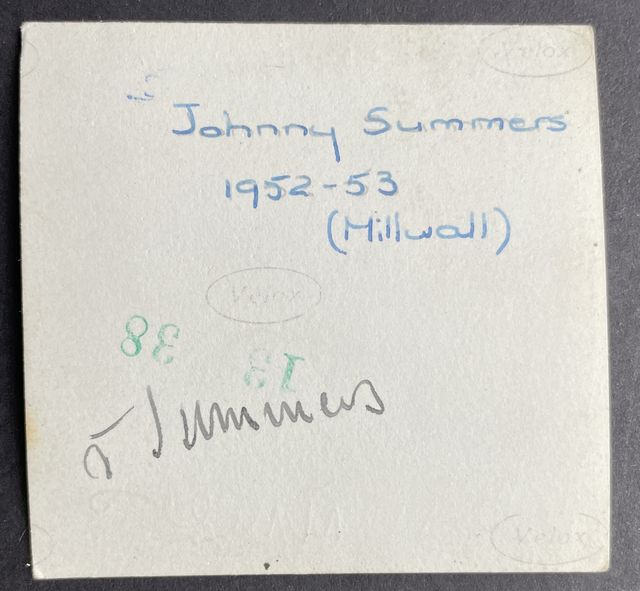 Velox
Johnny Summers
1952-53
(Millwall)
Velox
38
13
J Summers
Velox